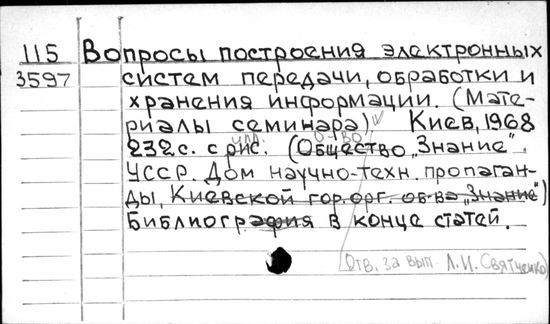 115 Вопросы построения электронных
3597 систем передачи, обработки и
хранения информации. (Мате-
риалы семинара). Киев, 1968
232 с. с рис. (Общество „Знание"
УССР. Дом научно-техн. пропаган-
ды, Киевской гор. орг. об-ва „Знание")
Библиография в конце статей.
Отв. за вып. Л. И. Святченко)